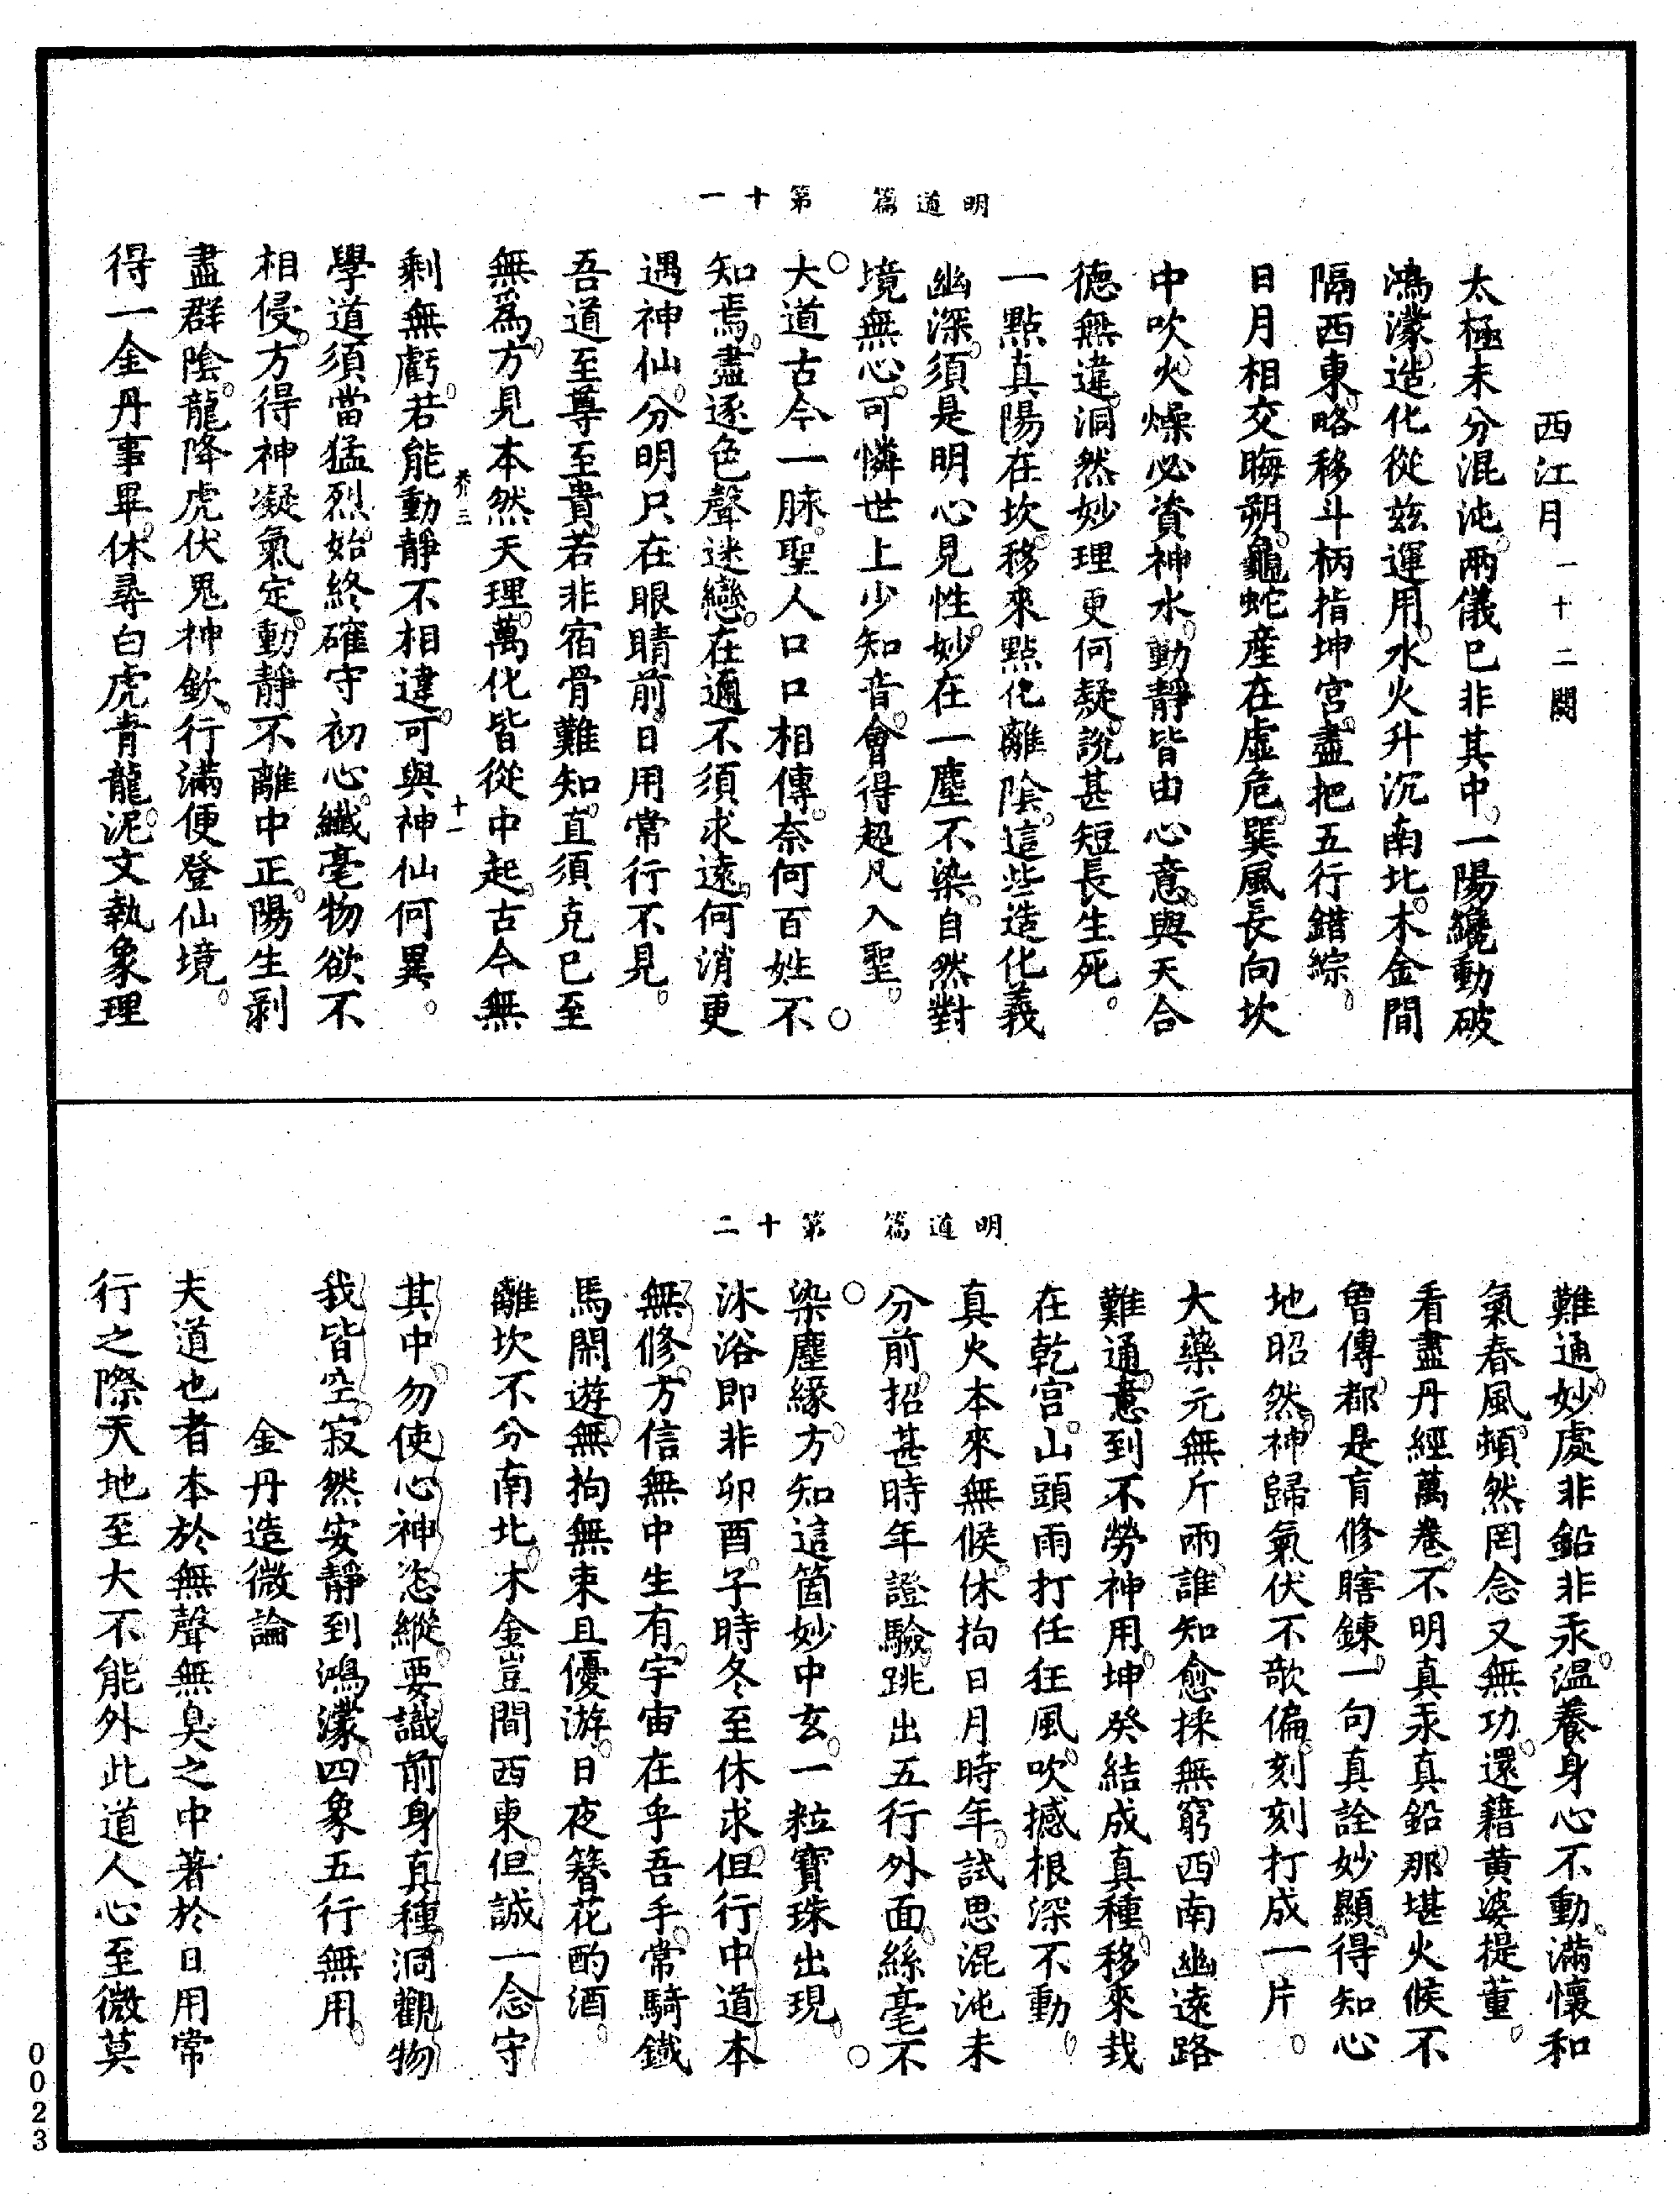 明道篇　第十一
西江月一十二闋
太極未分混沌兩儀已非其中一陽纔動破
鴻濛造化從茲運用水火升沉南北木金間
隔西東略移斗柄指坤宮盡把五行錯綜
日月相交晦朔龜蛇產在虛危巽風長向坎
中吹火燥必資神水動靜皆由心意與天合
德無違洞然妙理更何疑說甚短長生死
一點真陽在坎移來點化離陰這些造化義
幽深須是明心見性妙在一塵不染自然對
境無心可憐世上少知音會得超凡入聖
大道古今一脉聖人口口相傳奈何百姓不
知焉盡逐色聲迷戀在邇不須求遠何消更
遇神仙分明只在眼睛前日用常行不見
吾道至尊至貴若非宿骨難知直須克已至
無爲方見本然天理萬化皆從中起古今無
養三　十一
剩無虧若能動靜不相違可與神仙何異
學道須當猛烈始終確守初心纖毫物欲不
相侵方得神凝氣定動靜不離中正陽生剥
盡群陰龍降虎伏鬼神欽行滿便登仙境
得一金丹事畢休尋白虎青龍泥文執象理
明道篇　第十二
難通妙處非鉛非汞温養身心不動滿懷和
氣春風頓然罔念又無功還藉黃婆提董
看盡丹經萬卷不明真汞真鉛那堪火候不
曾傳都是盲修瞎鍊一句真詮妙顯得知心
地昭然神歸氣伏不敧偏刻刻打成一片
大藥元無斤兩誰知愈採無窮西南幽遠路
難通意到不勞神用坤癸結成真種移來栽
在乾宮山頭雨打任狂風吹撼根深不動
真火本來無候休拘日月時年試思混沌未
分前招甚時年證驗跳出五行外面絲毫不
染塵緣方知這箇妙中玄一粒寶珠出現
沐浴即非卯酉子時冬至休求但行中道本
無修方信無中生有宇宙在乎吾手常騎鐵
馬閑遊無拘無束且優游日夜簪花酌酒
離坎不分南北木金豈間西東但誠一念守
其中勿使心神恣縱要識前身真種洞觀物
我皆空寂然安靜到鴻濛四象五行無用
金丹造微論
夫道也者本於無聲無臭之中著於日用常
行之際天地至大不能外此道人心至微莫
0023